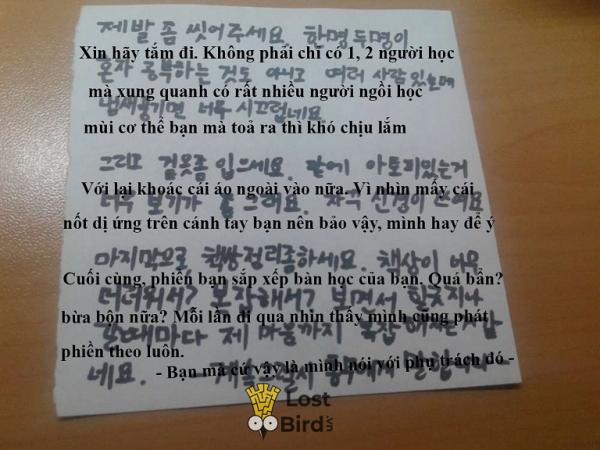 제발 좀 씻어주세요. 한명 두명이
Xin hãy tắm đi. Không phải chỉ có 1, 2 người học
혼자 공부하는 것도 아니고 여러 사람 있는데
mà xung quanh có rất nhiều người ngồi học
너무
mùi cơ thể bạn mà toả ra thì khó chịu lắm
그리고 겉옷좀 입으세요. 팔에 아토피있는거
Với lại khoác cái áo ngoài vào nữa. Vì nhìn mấy cái
너무 보기가 좀 그래요. 자꾸 신경이
nốt dị ứng trên cánh tay bạn nên bảo vậy, mình hay để ý
마지막으로, 책상정리좀하세요. 책상이 너무
Cuối cùng, phiền bạn sắp xếp bàn học của bạn. Quá bẩn?
더러워서? 복잡해서?
bừa bộn nữa? Mỗi lần đi qua nhìn thấy mình cũng phát
갈때마다 제 마음까지 복잡
phiền theo luôn.
네요.
- Bạn mà cứ vậy là mình nói với phụ trách đó -
Lost
Bird